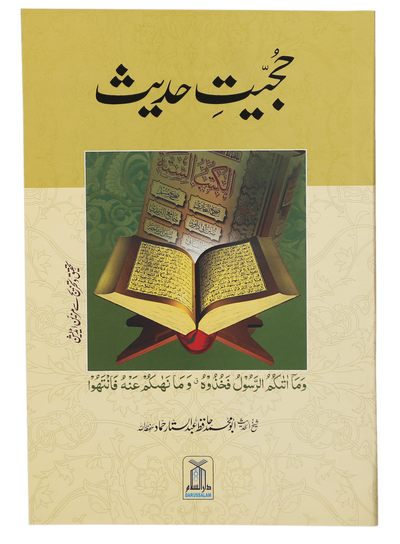 حُجیّتِ حدیث
الكتب الستة
وَمَا اٰتٰىكُمُ الرَّسُوْلُ فَخُذُوْهُ ۚ وَمَا نَهٰىكُمْ عَنْهُ فَانْتَهُوْا
شیخ الحدیث ابو محمد حافظ عبدالستار حماد حفظہ اللہ
دارالسلام
DARUSSALAM